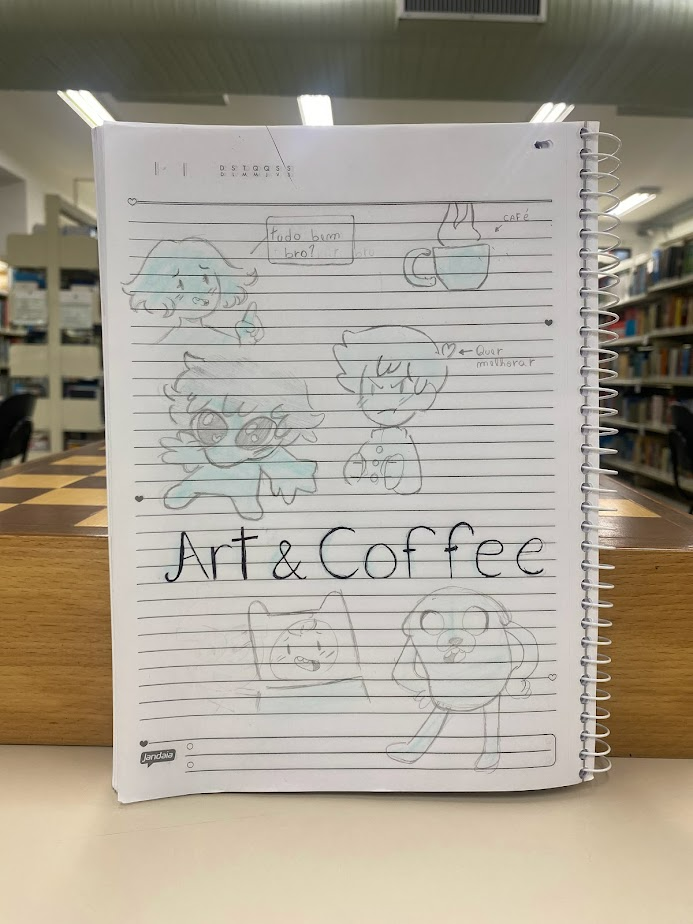 D S T Q Q S S
D L M M J V S
tudo bem
bro?
CAFÉ
Quer
melhorar
Art & Coffee
jandaia